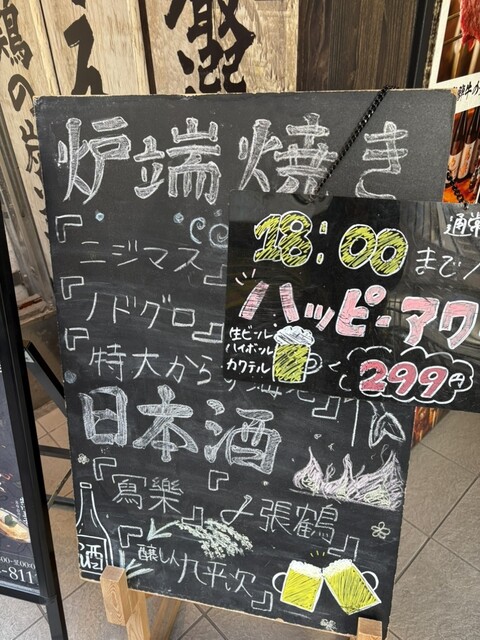 炉端焼き
『ニジマス
『ノドグロ』
『特大から
日本酒
『寫樂』
『〆張鶴』
『醸し人九平次』
酒
通常
18:00まで
ハッピーアワ
生ビール
ハイボール
カクテル
299円
鶏の炭
厳選